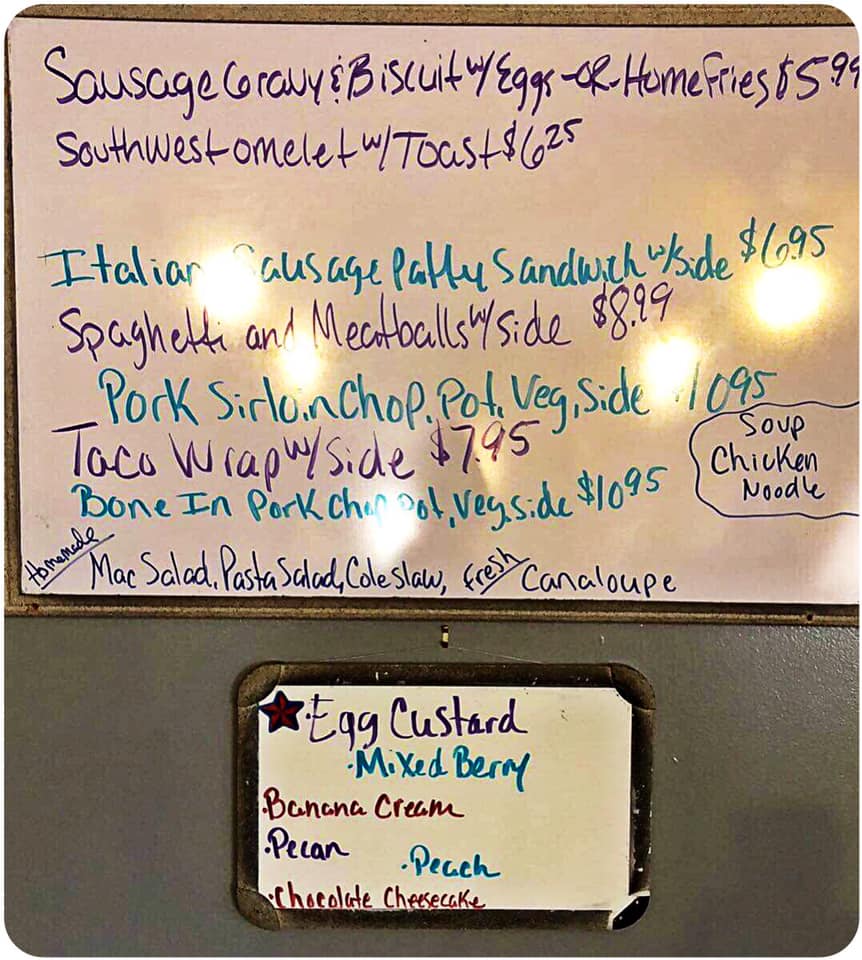 Sausage Gravy & Biscuit w/ Eggs -OR- Home Fries $5.99
Southwest omelet w/ Toast $6.25
Italian Sausage Patty Sandwich w/side $6.95
Spaghetti and Meatballs w/ side $8.99
Pork Sirloin Chop, Pot, Veg, Side $10.95
Taco Wrap w/ side $7.95
Bone In Pork Chop Pot, Veg, side $10.95
Soup
Chicken
Noodle
Homemade Mac Salad, Pasta Salad, Coleslaw, fresh Canaloupe
·Egg Custard
·Mixed Berry
·Banana Cream
·Pecan
·Peach
·Chocolate Cheesecake